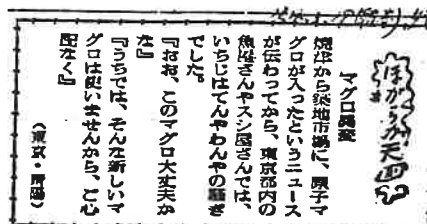 ほがらか天国
マグロ異変
焼津から築地市場に、原子マ
グロが入ったというニュース
が伝わってから、東京都内の
魚屋さんやスシ屋さんでは、
いちじはてんやわんやの騒ぎ
でした。
『おお、このマグロ大丈夫か
な』
『うちでは、そんな新しいマ
グロは使いませんから、ご心
配なく』
(東京・